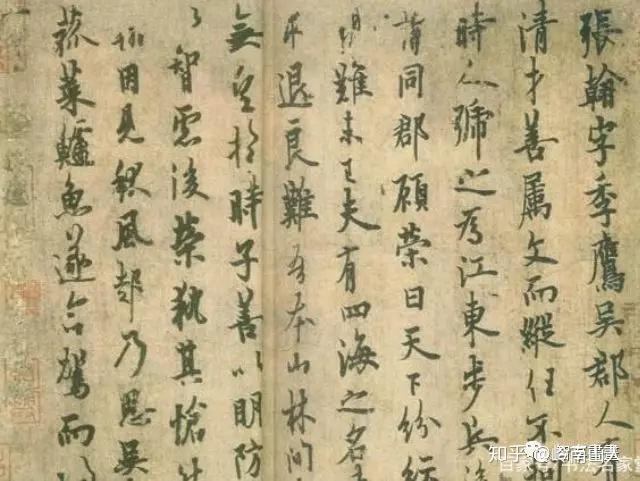 張翰字季鷹吳郡人有
清才善属文而縱任不拘
時人號之為江東步兵後
謂同郡顧榮曰天下紛紜
難未已夫有四海之名者
求退良難吾本山林間
無望於時子善以明防
智慮後榮執其愴然
因見秋風起乃思吳
菰菜鱸魚遂命駕而
知乎